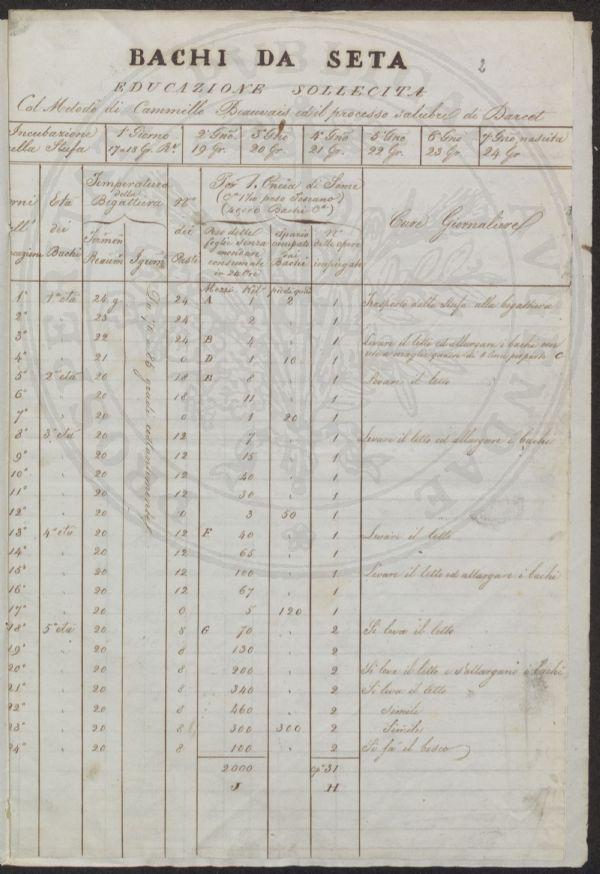 BACHI DA SETA
2
EDUCAZIONE SOLLECITA
Col Metodo di Cammillo Beauvais ed il processo salubre di Darcet
Incubazione 1° Giorno 2° Gno 3° Gno 4° Gno 5° Gno 6° Gno 7° Gno nascita
ella Stufa 17 a 18 Gr. Rr. 19 Gr. 20 Gr. 21 Gr. 22 Gr. 23 Gr. 24 Gr
orni Età Temperatura N° Per 1. Oncia di Seme Cure Giornaliere
ell' dei della dei
cazione Bachi Bigattiera Pasti
Termom Reaum Igrom
Peso delle foglie senza mondare consumate in 24 Ore
spazio occupato dai Bachi
N° delle opere impiegate
piedi qdti
Da 75 a 85 gradi costantemente
1° 1a età 24 g 24 A 1 2 1 Trasporto dalla Stufa alla bigattiera
2° " 23 24 2 . 1
3° " 22 24 B 4 . 1 Levare il letto ed allargare i bachi con
4° " 21 0 D 1 10 1 C
5° 2a età 20 18 B 8 . 1 Levare il letto
6° " 20 18 11 . 1
7° " 20 0 1 20 1
8° 3a età 20 12 7 . 1 Levare il letto ed allargare i bachi
9° " 20 12 15 . 1
10° " 20 12 40 . 1
11° " 20 12 30 . 1
12° " 20 0 3 50 1
13° 4a età 20 12 E 40 . 1 Levare il letto
14° " 20 12 65 . 1
15° " 20 12 100 . 1 Levare il letto ed allargare i bachi
16° " 20 12 67 . 1
17° " 20 0 5 120 1
18° 5a età 20 8 G 70 . 2 Si leva il letto
19° " 20 8 130 . 2
20° " 20 8 200 . 2 Si leva il letto e s'allargano i bachi
21° " 20 8 340 . 2 Si leva il letto
22° " 20 8 460 . 2 Simile
23° " 20 8 300 300 2 Simile
24° " 20 8 100 . 2 Si fa il bosco
2000 31
J H